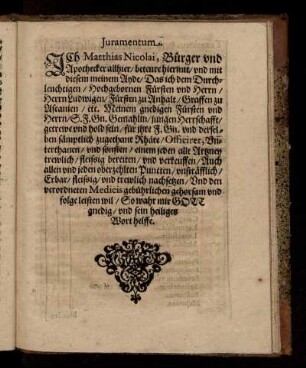 Juramentum.
ICh Matthias Nicolai, Bürger vnd
Apothecker allhier, betenre hiermit, vnd mit
diesem meinem Ayde, Das ich dem Durch-
leuchtigen, Hochgebornen Fürsten vnd Herrn,
Herrn Ludwigen, Fürsten zu Anhalt, Graffen zu
Ascanien, etc. Meinem gnedigen Fürsten vnd
Herrn, S. F. Gn. Gemahlin, jungen Herrschafft,
getrewe vnd hold sein, für jhre F. Gn. vnd dersel-
ben sämptlich zugethane Rhäte, Officirer, Vn-
terthanen, vnd sonsten, einem jeden alle Artzney
trewlich, fleissig bereiten, vnd verkeuffen, Auch
allen vnd jeden oberzehlten Puncten, vnsträfflich,
Erbar, fleissig, vnd trewlich nachsetzen, Vnd den
verordneten Medicis gebührlichen gehorsam vnd
folge leisten wil, So wahr mir GOTT
gnedig, vnd sein heiliges
Wort helffe.